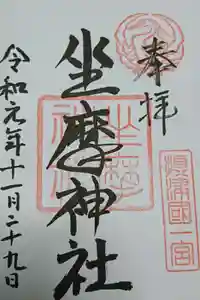 奉拝
摂津国一宮
坐摩神社
令和元年十一月二十九日